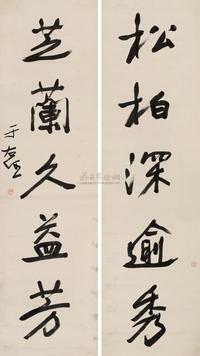 松柏深逾秀
芝蘭久益芳
于右任